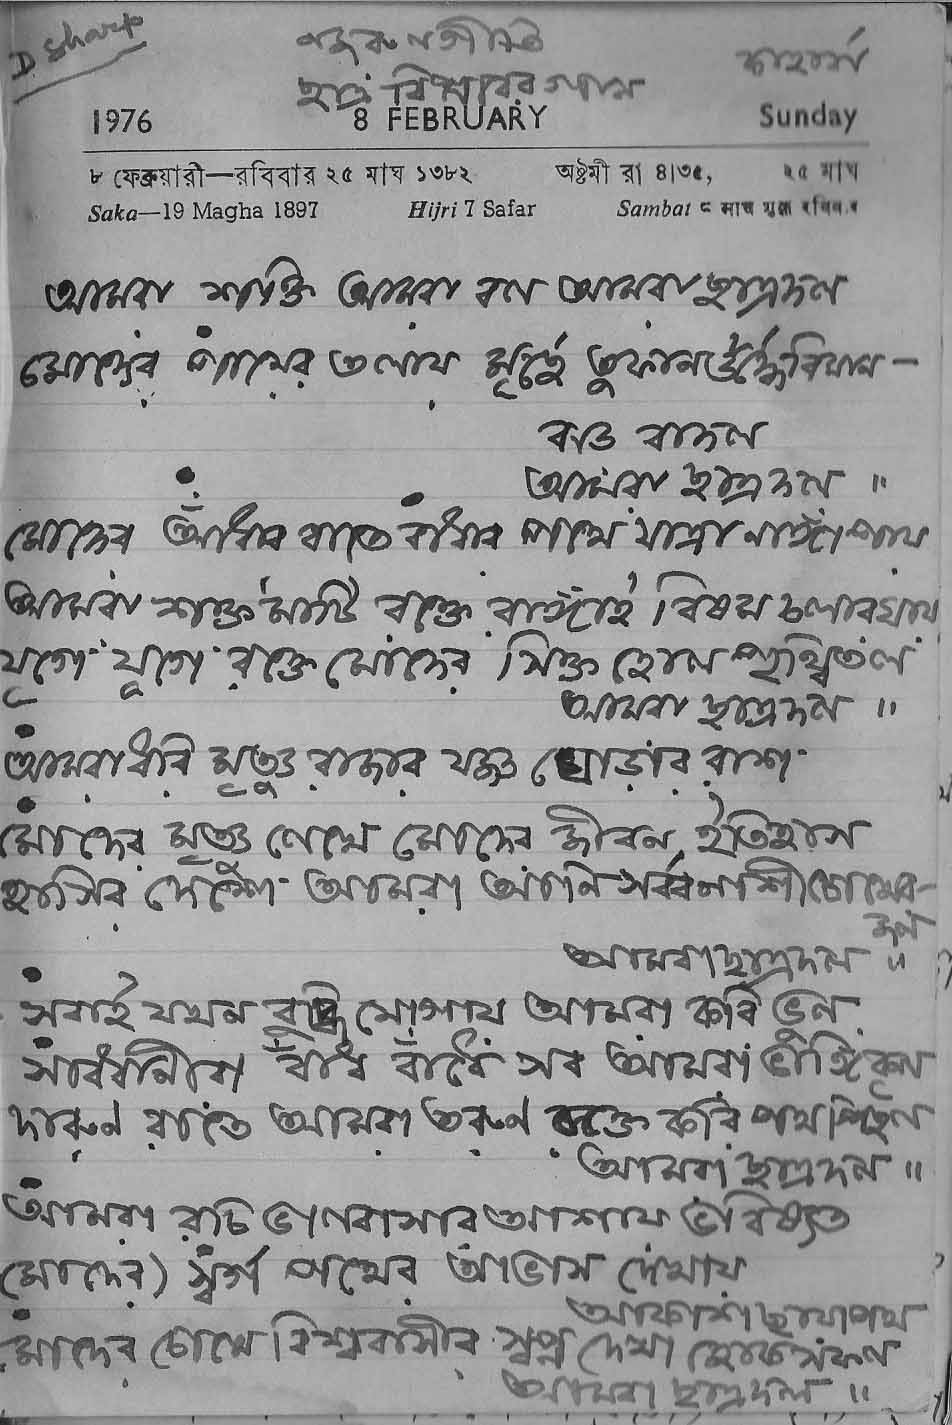 D. Sharp
নজরুলগীতি
ছাত্র বিপ্লবের গান
কাহারবা
1976 8 FEBRUARY Sunday
৮ ফেব্রুয়ারী—রবিবার ২৫ মাঘ ১৩৮২ অষ্টমী রা ৪।৩৫, ২৫ মাঘ
Saka—19 Magha 1897 Hijri 7 Safar Sambat ८ माघ शुक्ल रविवार
আমরা শক্তি আমরা বল আমরা ছাত্রদল
মোদের পায়ের তলায় মূর্ছে তুফান উর্দ্ধে বিমান -
ঝড় বাদল
আমরা ছাত্রদল ॥
মোদের আঁধার রাতে বাধার পথে যাত্রা নাঙ্গা পায়
আমরা শক্ত মাটি রক্তে রাঙ্গাই বিষম চলার ঘায়
যুগে যুগে রক্তে মোদের সিক্ত হোল পৃথ্বিতল
আমরা ছাত্রদল ॥
আমরা ধরি মৃত্যু রাজার যজ্ঞ ঘোড়ার রাশ
মোদের মৃত্যু লেখে মোদের জীবন ইতিহাস
হাসির দেশে আমরা আনি সর্বনাশী চোখের-
জল
আমরা ছাত্রদল ॥
সবাই যখন বুদ্ধি যোগায় আমরা করি ভুল
সাবধানীরা বাঁধ বাঁধে সব আমরা ভাঙ্গি কূল
দারুন রাতে আমরা তরুন রক্তে করি পথ পিছল
আমরা ছাত্রদল ॥
আমরা রচি ভালবাসার আশায় ভবিষ্যত
মোদের) স্বর্গ পথের আভাস দেখায়
আকাশ ছায়াপথ
মোদের চোখে বিশ্ববাসীর স্বপ্ন দেখা হোক সফল
আমরা ছাত্রদল ॥